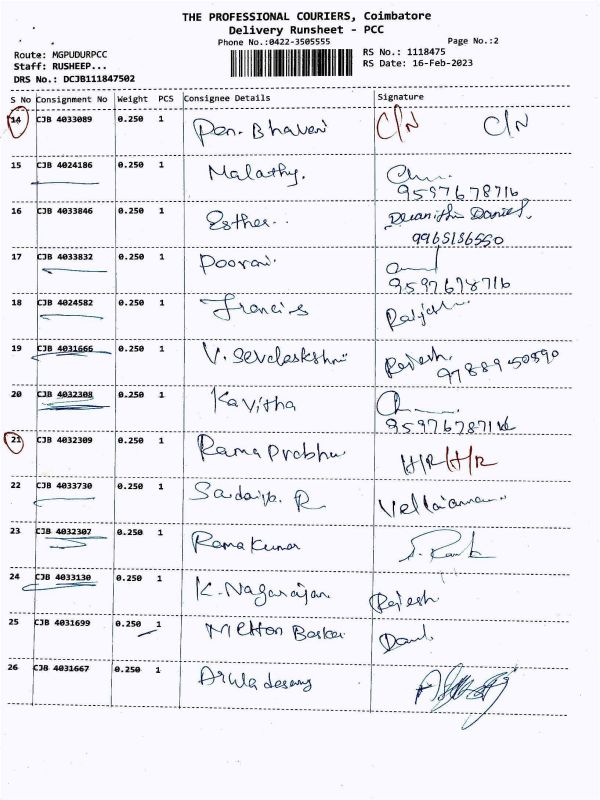 THE PROFESSIONAL COURIERS, Coimbatore
Delivery Runsheet - PCC
Phone No.:0422-3505555 Page No.:2
Route: MGPUDURPCC RS No.: 1118475
Staff: RUSHEEP... RS Date: 16-Feb-2023
DRS No.: DCJB111847502
S No Consignment No Weight PCS Consignee Details Signature
14 CJB 4033089 0.250 1 Pon. Bhavani C/N C/N
15 CJB 4024186 0.250 1 Malathy.
9597678716
16 CJB 4033846 0.250 1 Esther.. Daniel.
9965156550
17 CJB 4033832 0.250 1 Poorani.
9597678716
18 CJB 4024582 0.250 1 Francis
19 CJB 4031666 0.250 1 Rajesh.
9788950590
20 CJB 4032308 0.250 1 Kavitha
21 CJB 4032309 0.250 1 Rama Prabhu H/R H/R
22 CJB 4033730 0.250 1
23 CJB 4032307 0.250 1 Rama Kumar
24 CJB 4033130 0.250 1 K. Nagarajan Rajesh
25 CJB 4031699 0.250 1
26 CJB 4031667 0.250 1